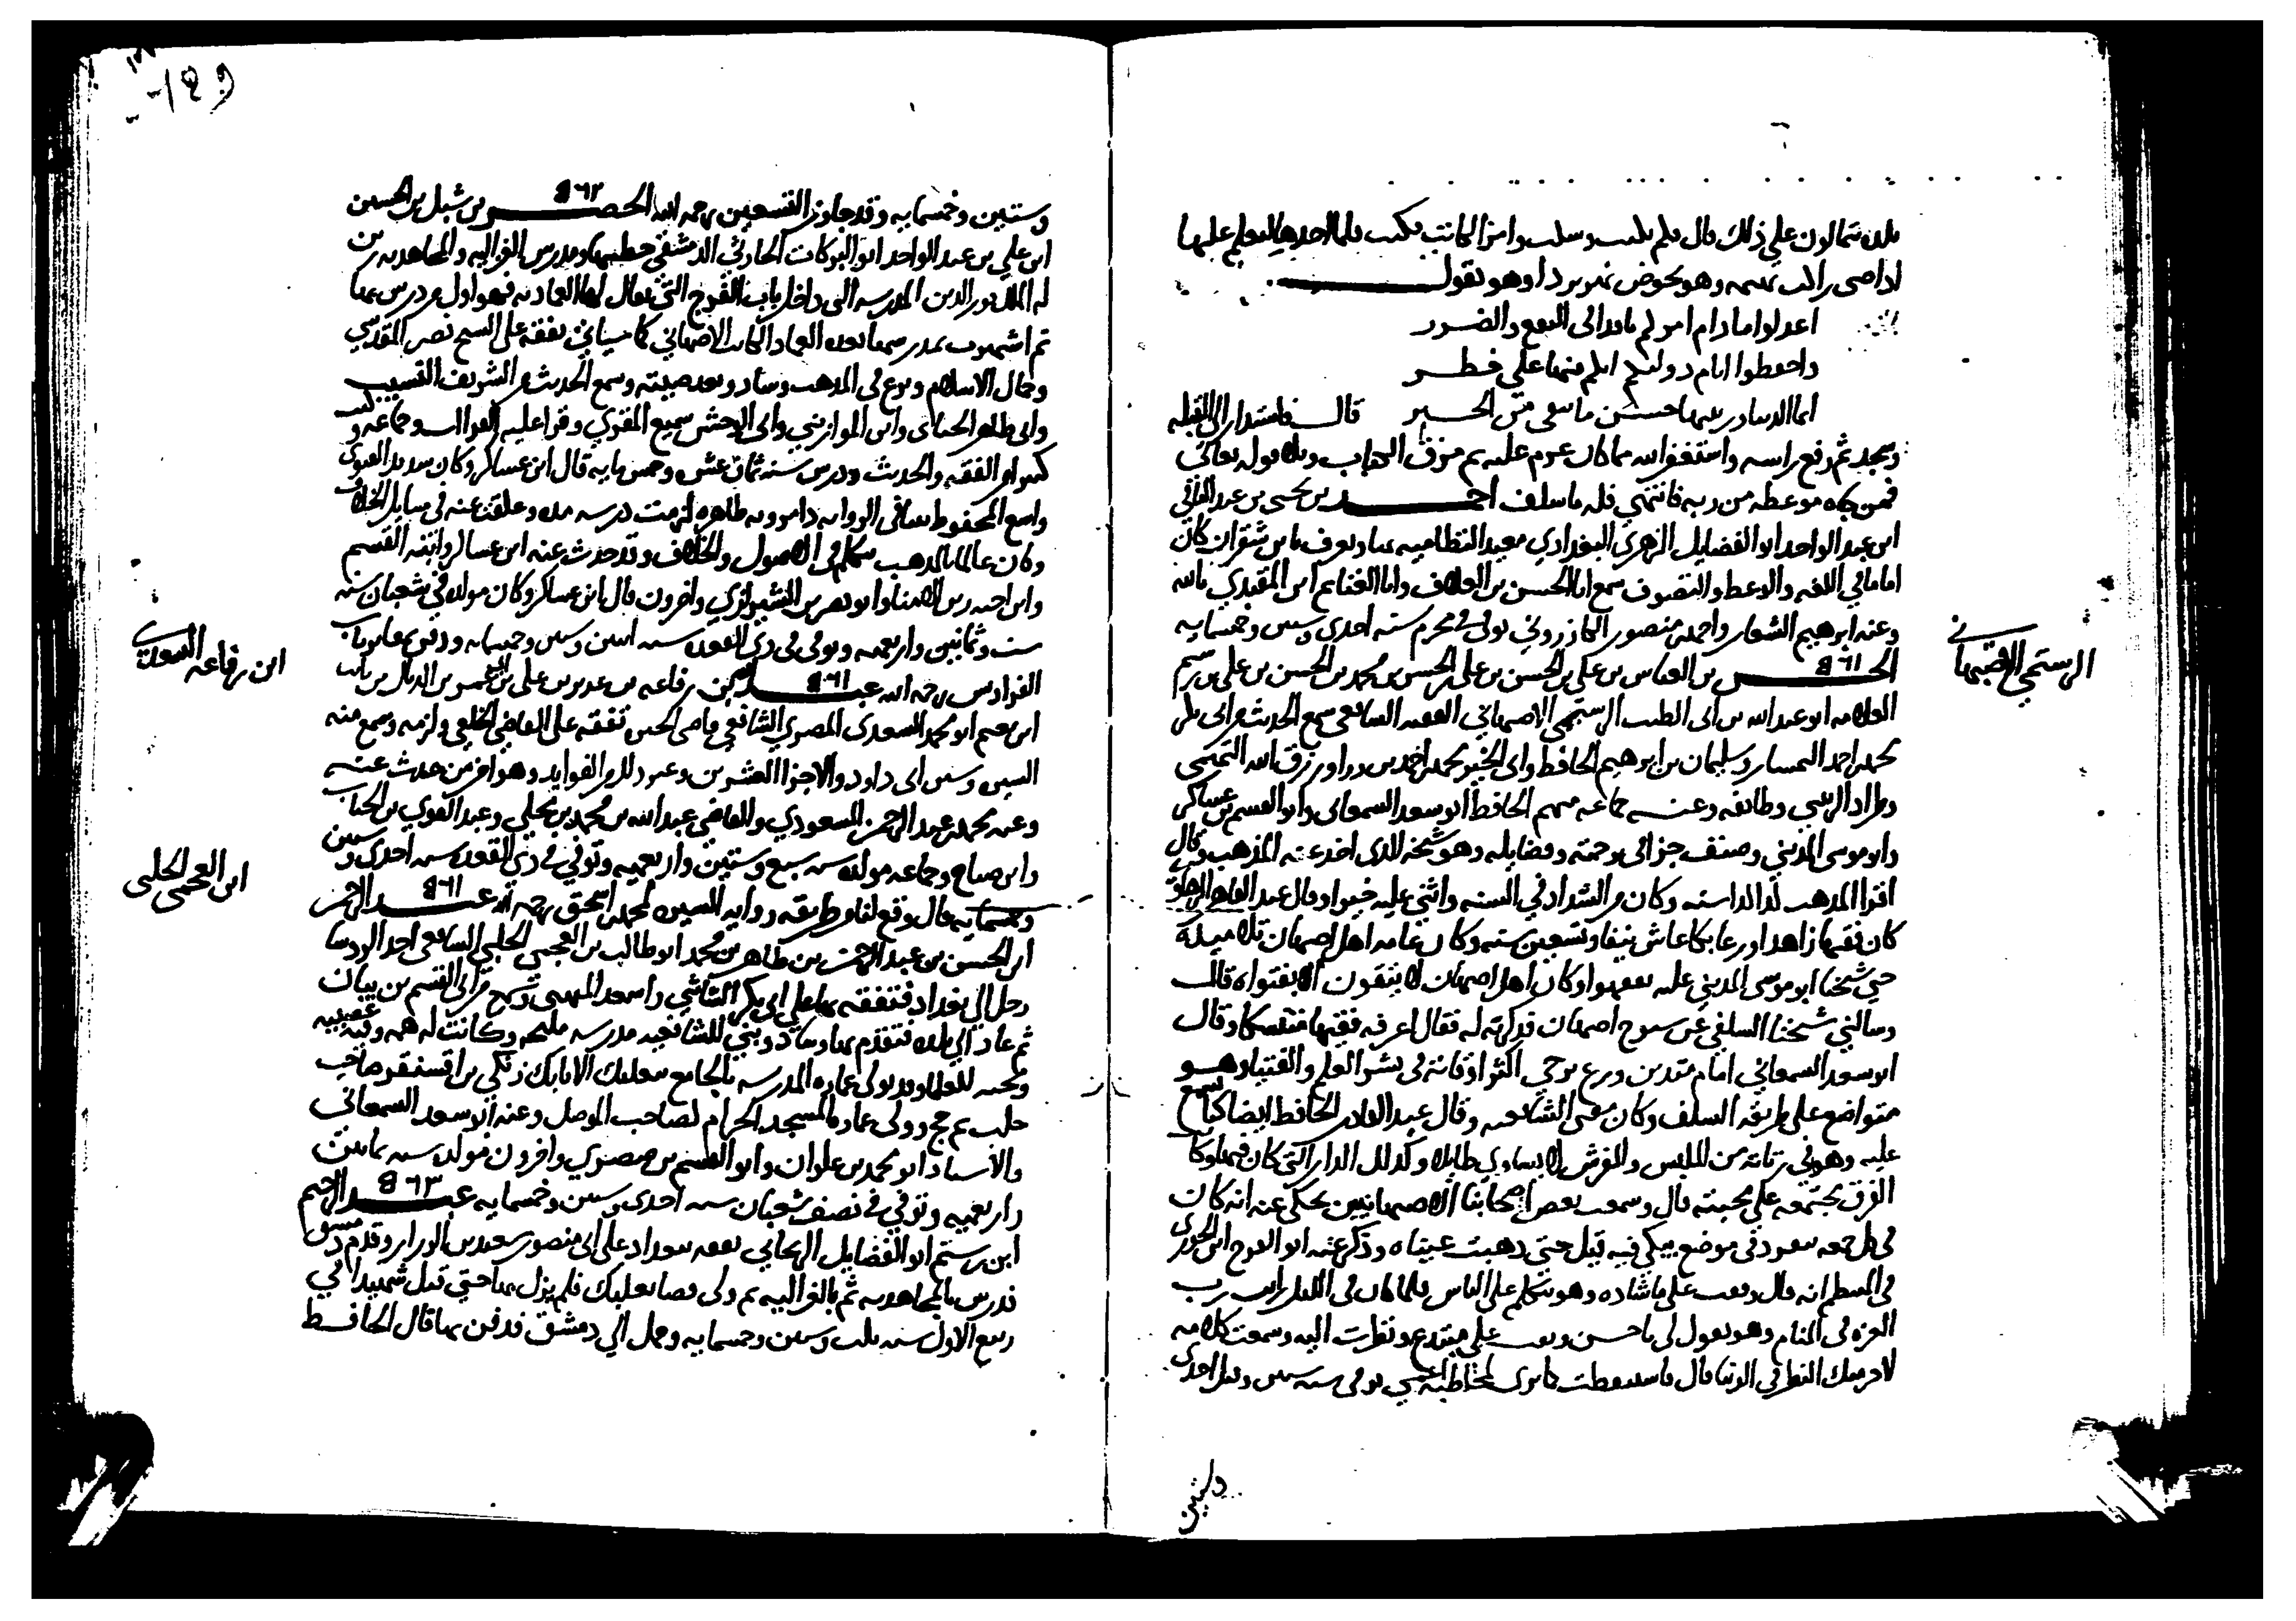 اعدلوا ما دام امركم نافذا في النفع والضرر
واحفظوا ايام دولتكم انكم منها على خطر
انما الدنيا وزينتها حسن ما يبقى من الخبر قال فاستدار الى القبلة
وسجد ثم رفع راسه واستغفر الله مما كان عزم عليه ثم مزق الكتاب وتلا قوله تعالى
فمن جاه موعظه من ربه فانتهى فله ما سلف احمد بن يحيى بن عبد الباقي
ابن عبد الواحد ابو الفضايل الزهري البغدادي معيد النظاميه بها ويعرف بابن شقران كان
اماما في الفقه والوعظ والتصوف سمع ابا الحسن بن العلاف وابا الغنايم ابن المهتدي بالله
وعنه ابراهيم الشعار واحمد بن منصور الكازروني توفي في محرم سنه احدى وستين وخمسمايه
٥٦١
الحسن بن العباس بن علي بن الحسن بن علي بن الحسن بن محمد بن الحسن بن علي بن رستم
العلامه ابو عبد الله بن ابي الطيب الرستمي الاصبهاني الفقيه الشافعي سمع الحديث من ابي بكر
محمد بن احمد السمسار وسليمان بن ابرهيم الحافظ وابي الخير محمد بن احمد بن ررا ورزق الله التميمي
وطراد الزينبي وطائفه وعنه جماعه منهم الحافظ ابو سعد السمعاني وابو القسم بن عساكر
وابو موسى المديني وصنف جزا في ترجمته وفضايله وهو شيخه الذي اخذ عنه المذهب وقال
اقرا المذهب كذا كذا سنه وكان من الشداد في السنه واثنى عليه خيرا وقال عبد القادر الرهاوي
كان فقيها زاهدا ورعا بكا عاش نيفا وتسعين سنه وكان عامه اهل اصبهان تلاميذه
حتى شيخنا ابو موسى المديني عليه تفقه وكان اهل اصبهان لا يثقون الا بفتواه قال
وسالني شيخنا السلفي عن شيوخ اصبهان فذكرته له فقال اعرفه فقيها متنسكا وقال
ابو سعد السمعاني امام متدين ورع يزجي اكثر اوقاته في نشر العلم والفتيا وهو
متواضع على طريقه السلف وكان مفتي الشافعيه وقال عبد القادر الحافظ ايضا كنا نسمع
عليه وهو في رثاثه من الملبس والمفرش لا يساوي طايلا وكذلك الدار التي كان فيها وكانت
الفرق مجتمعه على محبته قال وسمعت بعض اصحابنا الاصبهانيين يحكي عنه انه كان
في كل جمعه ينفرد في موضع يبكي فيه قيل حتى ذهبت عيناه وذكر عنه ابو الفرج ابن الجوزي
في المنتظم انه قال وقعت على ماشاده وهو يتكلم على الناس فلما كان في الليل رايت رب
العزه في المنام وهو يقول لي ياحسن وقفت على مبتدع ونظرت اليه وسمعت كلامه
لاحرمنك النظر في الدنيا قال فاستيقظت كما ترى توفي سنه ستين وقيل احدى
وستين
الرستمي الاصبهاني
وستين وخمسمايه وقد جاوز التسعين رحمه الله الخضر بن شبل بن الحسين
٥٦٢
ابن علي بن عبد الواحد ابو البركات الحارثي الدمشقي خطيبها ومدرس الغزاليه والمجاهديه بنى
له الملك نور الدين المدرسه التي داخل باب الفرج التي يقال لها العماديه فهو اول من درس بها
ثم اشتهرت بمدرسها بعده العماد الكاتب الاصبهاني كما سياتي تفقه على الشيخ نصر المقدسي
وجمال الاسلام وبرع في المذهب وساد وبعد صيته وسمع الحديث من الشريف النسيب
وابي طاهر الحنائي وابن الموازيني وابي الوحش سبيع المقري وقرا عليه القراات وجماعه وكتب
كثيرا من الفقه والحديث ودرس سنه ثمان عشره وخمس مايه قال ابن عساكر وكان سديد الفتوى
واسع المحفوظ ثبتا في الروايه ذا مروءه ظاهره لزمت درسه مده وعلقت عنه في مسايل الخلاف
وكان عالما بالمذهب يتكلم في الاصول والخلاف وقد حدث عنه ابن عساكر وابنه القسم
وابن اخيه زين الامنا وابو نصر بن الشيرازي واخرون قال ابن عساكر وكان مولده في شعبان سنه
ست وثمانين واربعمايه وتوفي في ذي القعده سنه اثنين وستين وخمسمايه ودفن بمقابر باب
الفراديس رحمه الله عبد الله بن رفاعه بن غدير بن علي بن ابي عمر بن الذيال بن ثابت
٥٦١
ابن نعيم ابو محمد السعدي المصري الشافعي قاضي الجيزه تفقه على القاضي الخلعي ولزمه وسمع منه
السيره وسنن ابي داود والاجزا العشرين وغير ذلك من الفوايد وهو اخر من حدث عنه
وعنه محمد بن عبد الرحمن المسعودي والقاضي عبد الله بن محمد بن مجلي وعبد القوي بن الجباب
وابن صباح وجماعه مولده سنه سبع وستين واربعمايه وتوفي في ذي القعده سنه احدى وستين
وخمسمايه قال وقع لنا من طريقه روايه السيره لمحمد بن اسحق رحمه الله عبد الرحمن
٥٦١
ابن الحسن بن عبد الرحمن بن طاهر بن محمد ابو طالب بن العجمي الحلبي الشافعي احد الروسا
رحل الى بغداد فتفقه بها على ابي بكر الشاشي واسعد الميهني وسمع من ابي القسم بن بيان
ثم عاد الى بلده فتقدم بها وساد وبنى للشافعيه مدرسه مليحه وكانت له همه وفيه عصبيه
ومحبه للعلما وقد تولى عماره المدرسه بالجامع ببعلبك الاتابك زنكي بن اقسنقر صاحب
حلب ثم حج وولي عماره المسجد الحرام لصاحب الموصل وعنه ابو سعد السمعاني
والاستاذ ابو محمد بن علوان وابو القسم بن صصري واخرون مولده سنه ثمانين
واربعمايه وتوفي في نصف شعبان سنه احدى وستين وخمسمايه عبد الرحيم
٥٦٣
ابن رستم ابو الفضايل الزنجاني تفقه ببغداد على ابي منصور سعيد بن الرزاز وقدم دمشق
فدرس بالمجاهديه ثم بالغزاليه ثم ولي قضا بعلبك فلم يزل بها حتى قتل شهيدا في
ربيع الاول سنه ثلث وستين وخمسمايه وحمل الى دمشق فدفن بها قال الحافظ
ابن رفاعه السعدي
ابن العجمي الحلبي